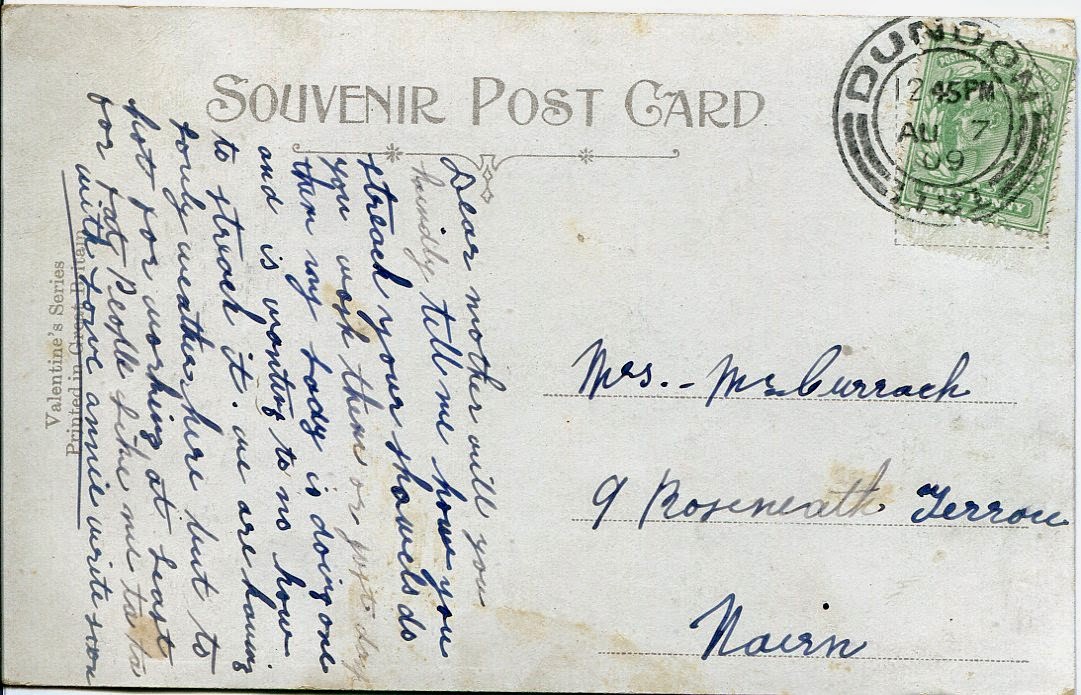 SOUVENIR POST CARD
DUNDONALD
12 45PM
AU 7
09
Dear mother will you
kindly tell me how you
streach your shawls do
you wash them or just damp
them my Lady is doing one
and is wanting to no how
to streach it. we are having
Lovly weather here but to
hot for working at least
for fat People Like me ta ta
with Love annie write soon
Mrs. - McCurrach
9 Roseneath Terrou
Nairn
Valentine's Series
Printed in Great Britain